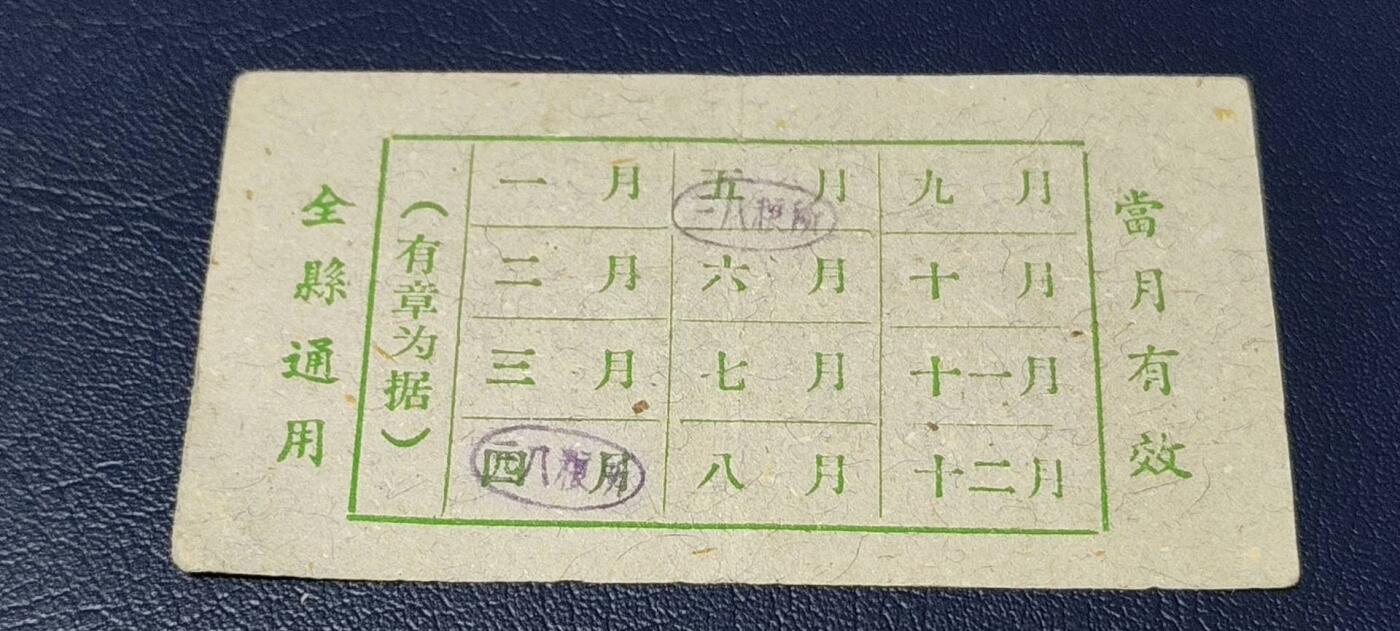 當月有效
一月
二月
三月
四月
五月
六月
七月
八月
九月
十月
十一月
十二月
(有章为据)
全縣通用